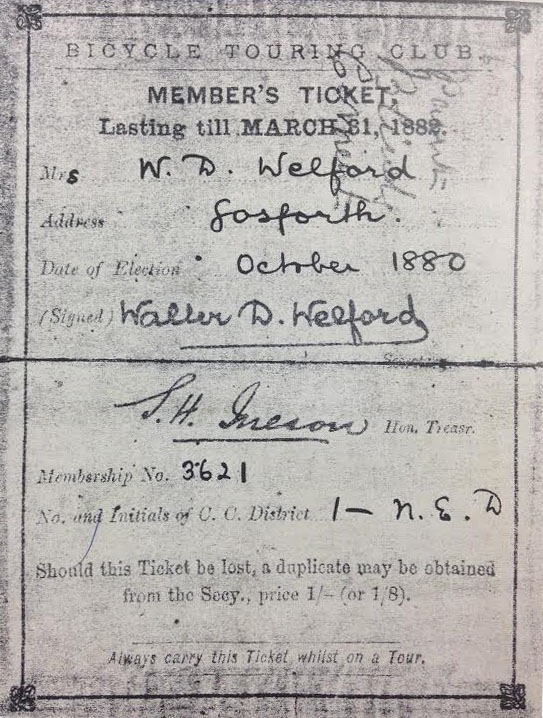 BICYCLE TOURING CLUB.
MEMBER'S TICKET,
Lasting till MARCH 31, 1882.
Mrs W. D. Welford
Address Gosforth.
Date of Election October 1880
(Signed) Walter D. Welford
Secretary
S. H. Ineson Hon. Treasr.
Membership No. 3621
No. and Initials of C. C. District 1 — N. E. D
Should this Ticket be lost, a duplicate may be obtained
from the Secy., price 1/- (or 1/8).
Always carry this Ticket whilst on a Tour.